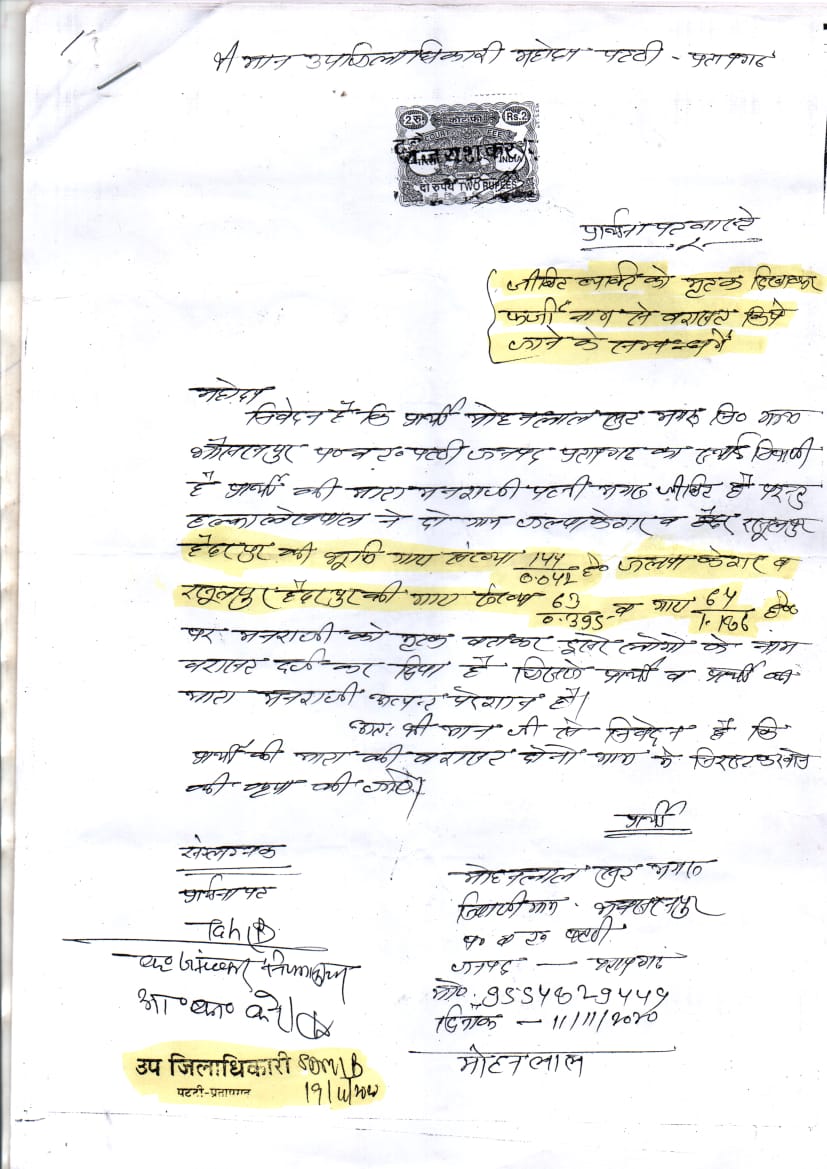 श्रीमान उपजिलाधिकारी महोदय पट्टी - प्रतापगढ
2 रु० कोर्ट फी Rs.2
COURT FEE
INDIA
दो रुपये TWO RUPEES
प्रार्थना पत्र वास्ते
जीवित व्यक्ति को मृतक दिखाकर
फर्जी नाम से वरासत किये
जाने के सम्बन्ध में
महोदय
निवेदन है कि प्रार्थी मोहनलाल सुत भगरु नि० ग्राम
पर० व त० पट्टी जनपद प्रतापगढ का स्थाई निवासी
है प्रार्थी की माता मनराजी पत्नी जीवित है परन्तु
हल्का लेखपाल ने दो ग्राम व रसूलपुर
हैदरपुर की भूमि गाटा संख्या 144/0.042 हे० व
रसूलपुर हैदरपुर की गाटा संख्या 63/0.395 व गाटा 64/1.166 हे०
पर मनराजी को मृतक बताकर दूसरे लोगों के नाम
वरासत दर्ज कर दिया है जिससे प्रार्थी व प्रार्थी की
माता मनराजी अत्यन्त परेशान है।
अतः श्रीमान जी से निवेदन है कि
प्रार्थी की माता की वरासत दोनों ग्राम से निरस्त करवाने
की कृपा की जावे।
प्रार्थी
संलग्नक
प्रार्थना पत्र
मोहनलाल सुत
निवासी ग्राम
प० व त० पट्टी
जनपद — प्रतापगढ
मो०: 9554829449
दिनाँक - 11/11/2020
मोहनलाल
Tah B
आ० का० करें
उप जिलाधिकारी SDM/B
पट्टी-प्रतापगढ़ 19/11/2020